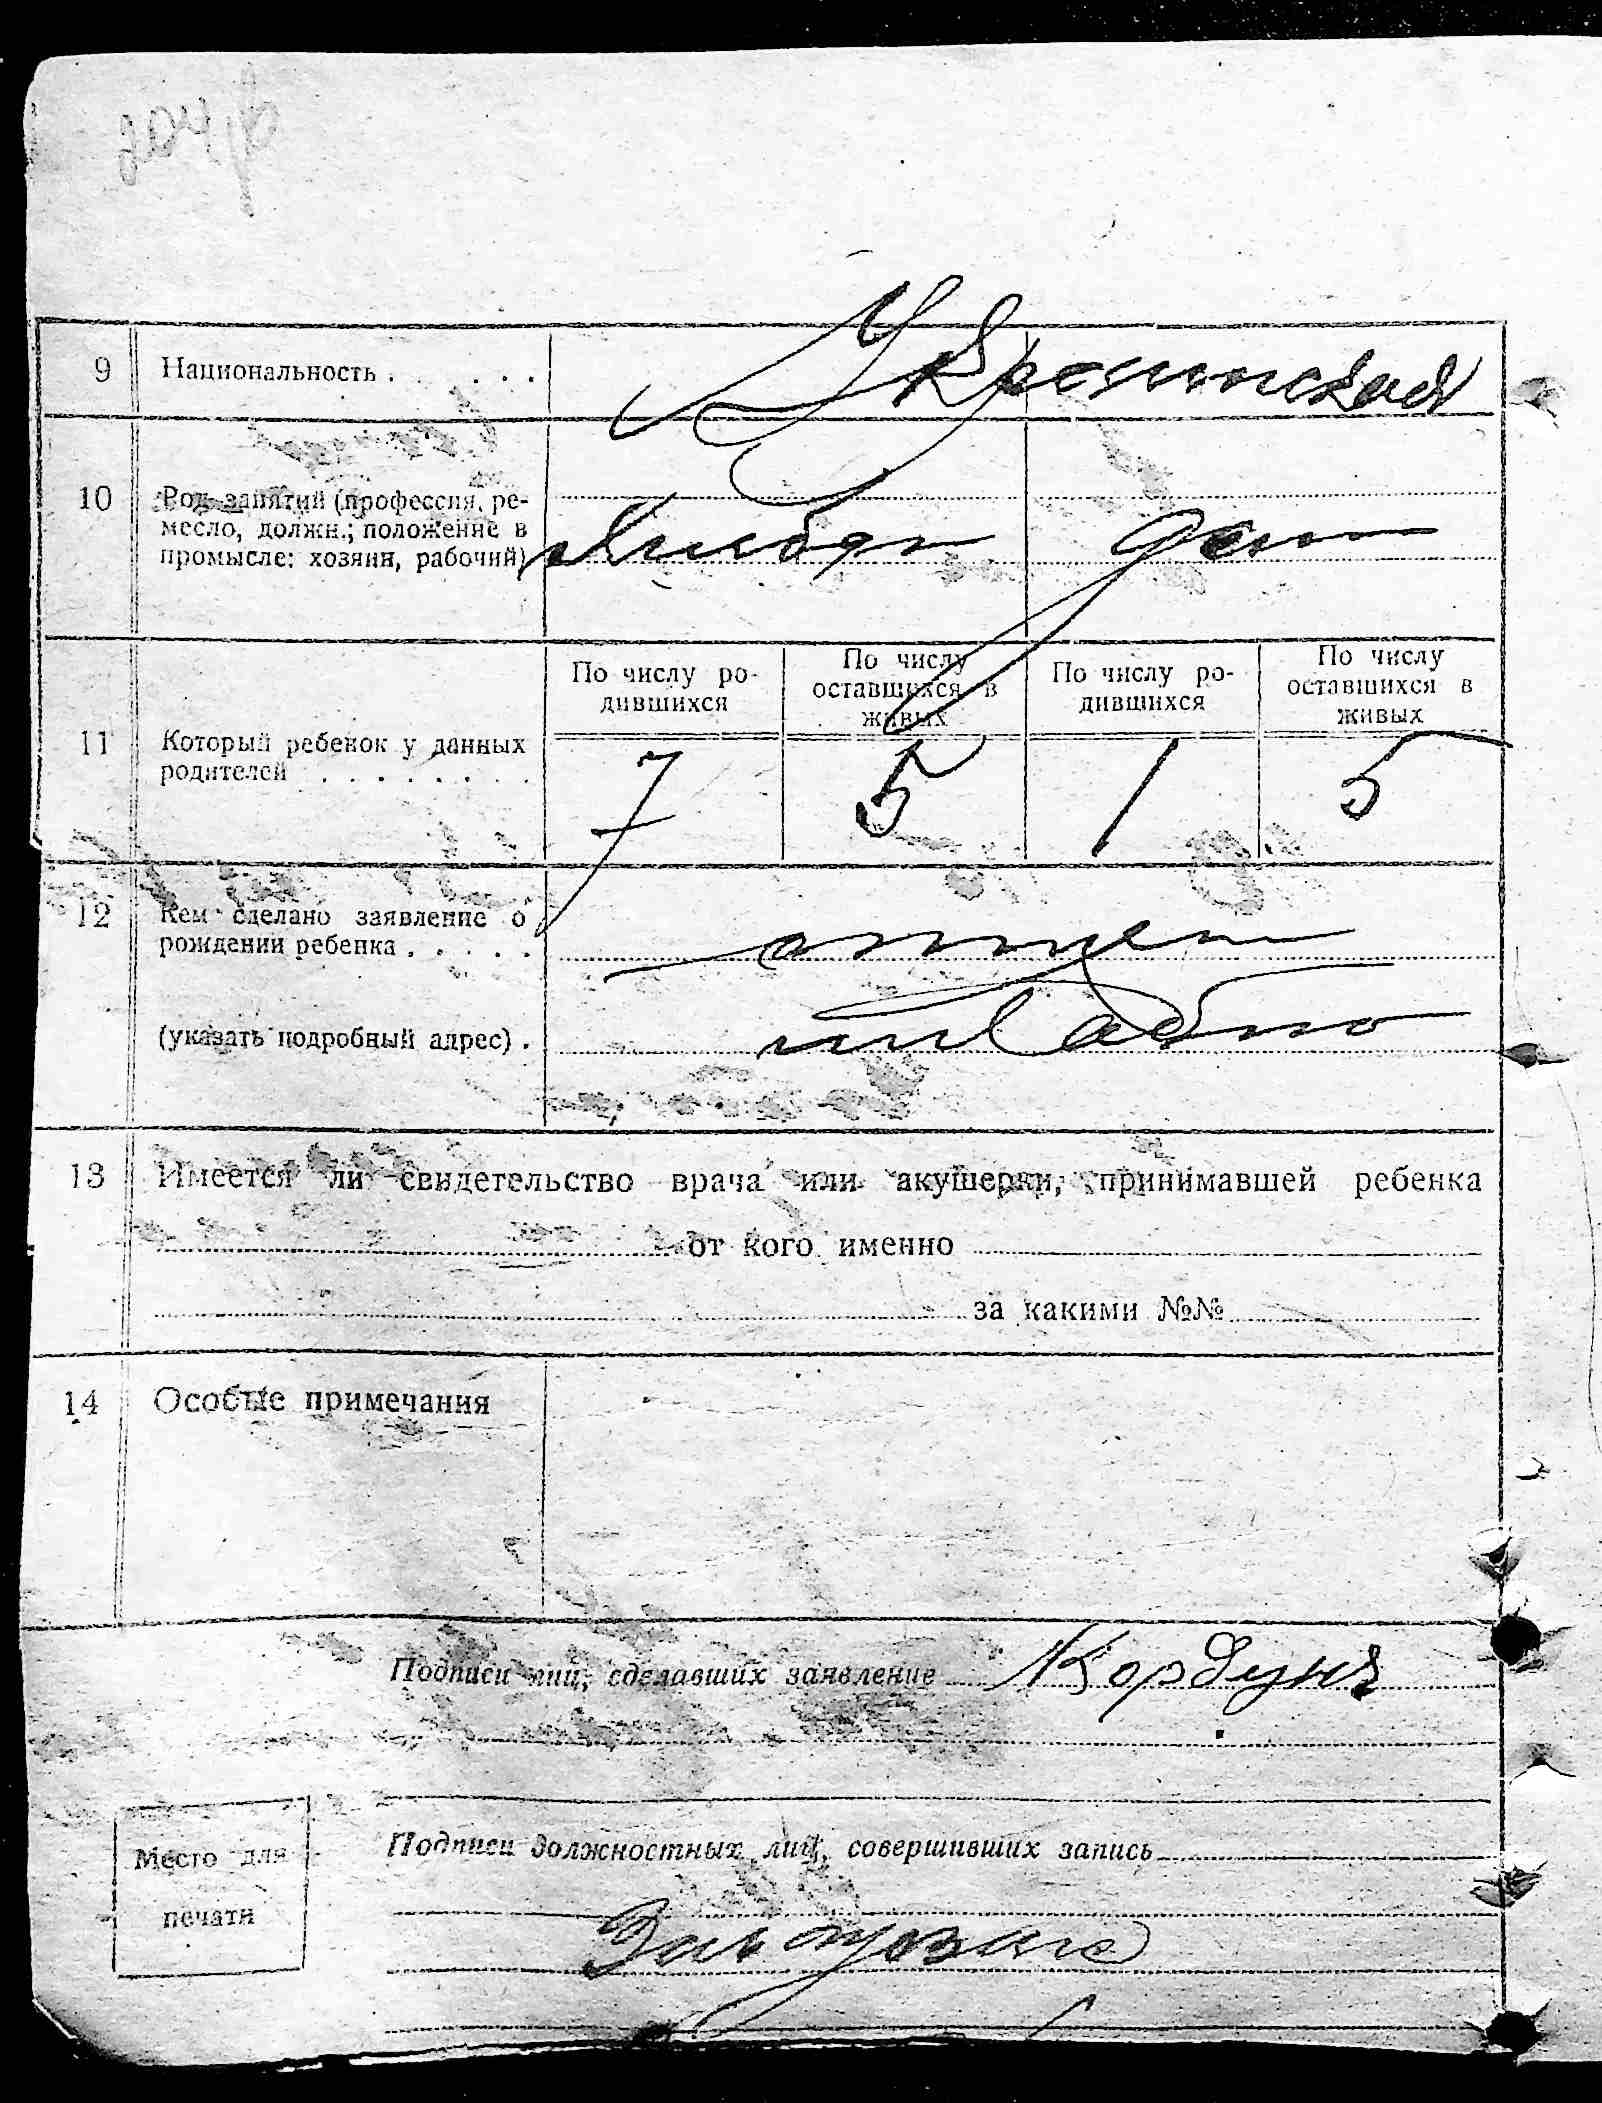 9 Национальность . . . . . .
Украинская
10 Род занятий (профессия, ре-
месло, должн.; положение в
промысле: хозяин, рабочий)
11 Который ребенок у данных
родителей . . . . . . . .
По числу ро-
дившихся
По числу
оставшихся в
живых
По числу ро-
дившихся
По числу
оставшихся в
живых
7 5 1 5
12 Кем сделано заявление о
рождении ребенка . . . . .
отцем
(указать подробный адрес) .
13 Имеется ли свидетельство врача или акушерки, принимавшей ребенка
от кого именно
за какими №№
14 Особые примечания
Подписи лиц, сделавших заявление Кордунъ
Место для
печати
Подписи должностных лиц, совершивших запись